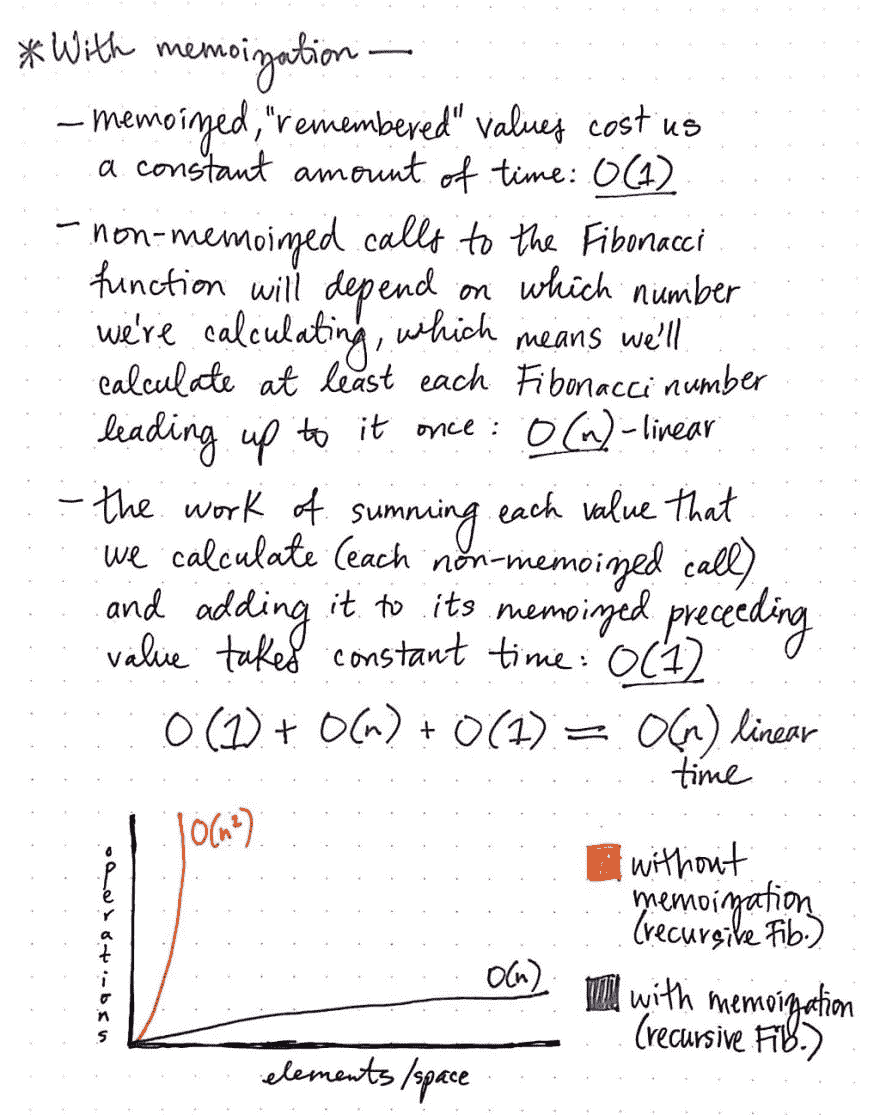 *With memoization —
— memoized, "remembered" values cost us
a constant amount of time: O(1)
- non-memoized calls to the Fibonacci
function will depend on which number
we're calculating, which means we'll
calculate at least each Fibonacci number
leading up to it once: O(n) - linear
- the work of summing each value that
we calculate (each non-memoized call)
and adding it to its memoized preceeding
value takes constant time: O(1)
O(1) + O(n) + O(1) = O(n) linear
time
operations
O(n²)
O(n)
elements/space
without
memoization
(recursive Fib.)
with memoization
(recursive Fib.)